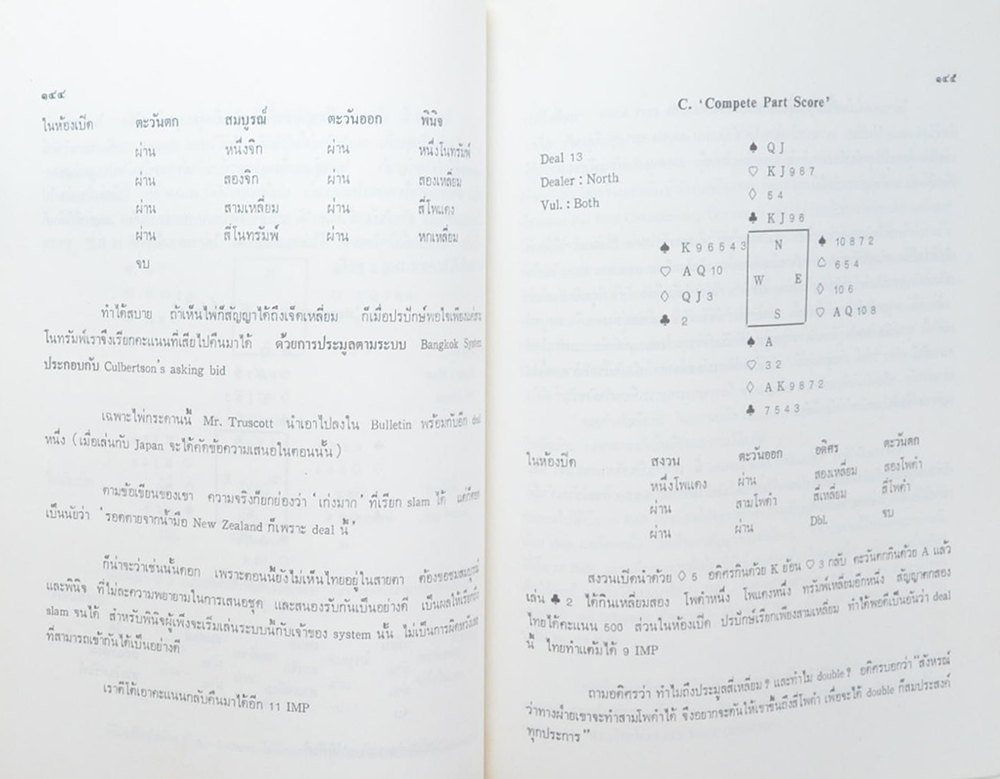 ๑๔๔
ในห้องเปิด ตะวันตก สมบูรณ์ ตะวันออก พินิจ
ผ่าน หนึ่งจิก ผ่าน หนึ่งโนทรัมพ์
ผ่าน สองจิก ผ่าน สองเหลี่ยม
ผ่าน สามเหลี่ยม ผ่าน สี่โพแดง
ผ่าน สี่โนทรัมพ์ ผ่าน หกเหลี่ยม
จบ
ทำได้สบาย ถ้าเห็นไพ่ก็สัญญาได้ถึงเจ็ดเหลี่ยม ก็เมื่อปรปักษ์พอใจเพียงแค่
โนทรัมพ์เราจึงเรียกคะแนนที่เสียไปคืนมาได้ ด้วยการประมูลตามระบบ Bangkok System
ประกอบกับ Culbertson's asking bid
เฉพาะไพ่กระดานนี้ Mr. Truscott นำเอาไปลงใน Bulletin พร้อมกับอีก deal
หนึ่ง (เมื่อเล่นกับ Japan จะได้คัดข้อความเสนอในตอนนั้น)
ตามข้อเขียนของเขา ความจริงก็ยกย่องว่า 'เก่งมาก' ที่เรียก slam ได้
เป็นนัยว่า 'รอดตายจากน้ำมือ New Zealand ก็เพราะ deal นี้'
ก็น่าจะว่าเช่นนั้นดอก เพราะตอนนี้ยังไม่เห็นไทยอยู่ในสายตา ต้องขอชมสมบูรณ์
และพินิจ ที่ไม่ละความพยายามในการเสนอชุด และสนองรับกันเป็นอย่างดี เป็นผลให้เรียกถึง
slam จนได้ สำหรับพินิจผู้เพิ่งจะเริ่มเล่นระบบนี้กับเจ้าของ system นั้น ไม่เป็นการผิดหวังเลย
ที่สามารถเข้ากันได้เป็นอย่างดี
เราตีโต้เอาคะแนนกลับคืนมาได้อีก 11 IMP
๑๔๕
C. 'Compete Part Score'
Deal 13
Dealer : North
Vul. : Both
♠ Q J
♡ K J 9 8 7
◇ 5 4
♣ K J 9 6
♠ K 9 6 5 4 3
♡ A Q 10
◇ Q J 3
♣ 2
N
W E
S
♠ 10 8 7 2
♡ 6 5 4
◇ 10 6
♡ A Q 10 8
♠ A
♡ 3 2
◇ A K 9 8 7 2
♣ 7 5 4 3
ในห้องปิด สงวน ตะวันออก อดิศร ตะวันตก
หนึ่งโพแดง ผ่าน สองเหลี่ยม สองโพดำ
ผ่าน สามโพดำ สี่เหลี่ยม สี่โพดำ
ผ่าน ผ่าน Dbl. จบ
สงวนเปิดนำด้วย ◇ 5 อดิศรกินด้วย K ย้อน ♡ 3 กลับ ตะวันตกกินด้วย A แล้ว
เล่น ♣ 2 ได้กินเหลี่ยมสอง โพดำหนึ่ง โพแดงหนึ่ง ทรัมพ์เหลี่ยมอีกหนึ่ง สัญญาตกสอง
ไทยได้คะแนน 500 ส่วนในห้องเปิด ปรปักษ์เรียกเพียงสามเหลี่ยม ทำได้พอดีเป็นอันว่า deal
นี้ ไทยทำแต้มได้ 9 IMP
ถามอดิศรว่า ทำไมถึงประมูลสี่เหลี่ยม ? และทำไม double ? อดิศรบอกว่า "สังหรณ์
ว่าทางฝ่ายเขาจะทำสามโพดำได้ จึงอยากจะดันให้เขาขึ้นถึงสี่โพดำ เพื่อจะได้ double ก็สมประสงค์
ทุกประการ"